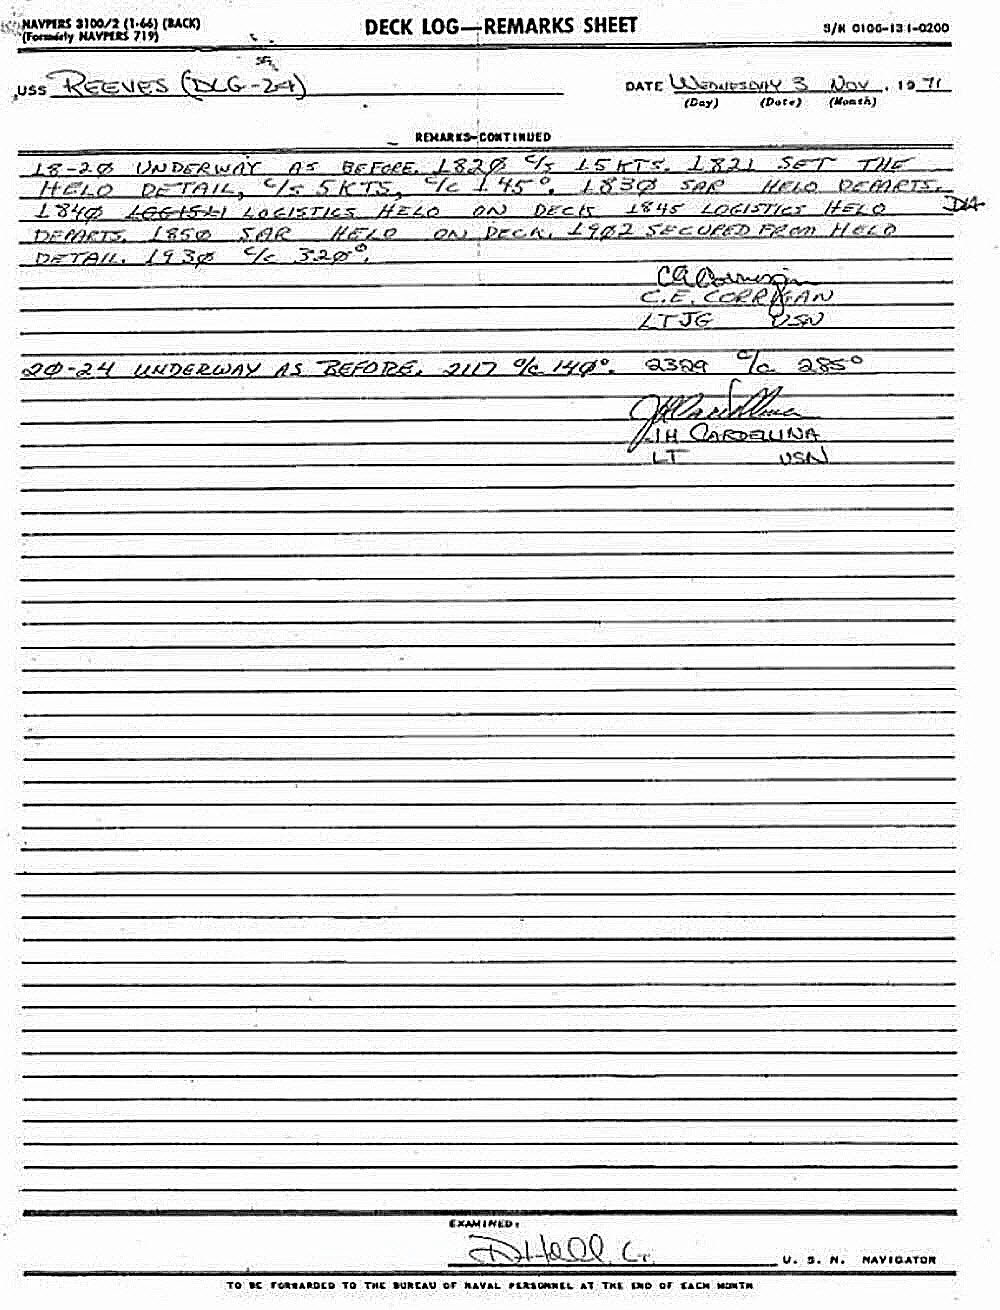 NAVPERS 3100/2 (1-66) (BACK)
(Formerly NAVPERS 719)
DECK LOG—REMARKS SHEET
S/N 0106-131-0200
USS REEVES (DLG-24)
DATE WEDNESDAY 3 NOV, 19 71
(Day) (Date) (Month)
REMARKS—CONTINUED
18-20 UNDERWAY AS BEFORE. 1820 C/S 15 KTS. 1821 SET THE
HELO DETAIL, C/S 5 KTS, C/C 145°. 1830 SAR HELO DEPARTS.
1840 LOGISTICS HELO ON DECK 1845 LOGISTICS HELO
DEPARTS. 1850 SAR HELO ON DECK. 1902 SECURED FROM HELO
DETAIL. 1930 C/C 320°.
C.E. CORRIGAN
LTJG USN
20-24 UNDERWAY AS BEFORE. 2117 C/C 140°. 2329 C/C 285°
JH CARDELLINA
LT USN
EXAMINED:
U. S. N. NAVIGATOR
TO BE FORWARDED TO THE BUREAU OF NAVAL PERSONNEL AT THE END OF EACH MONTH